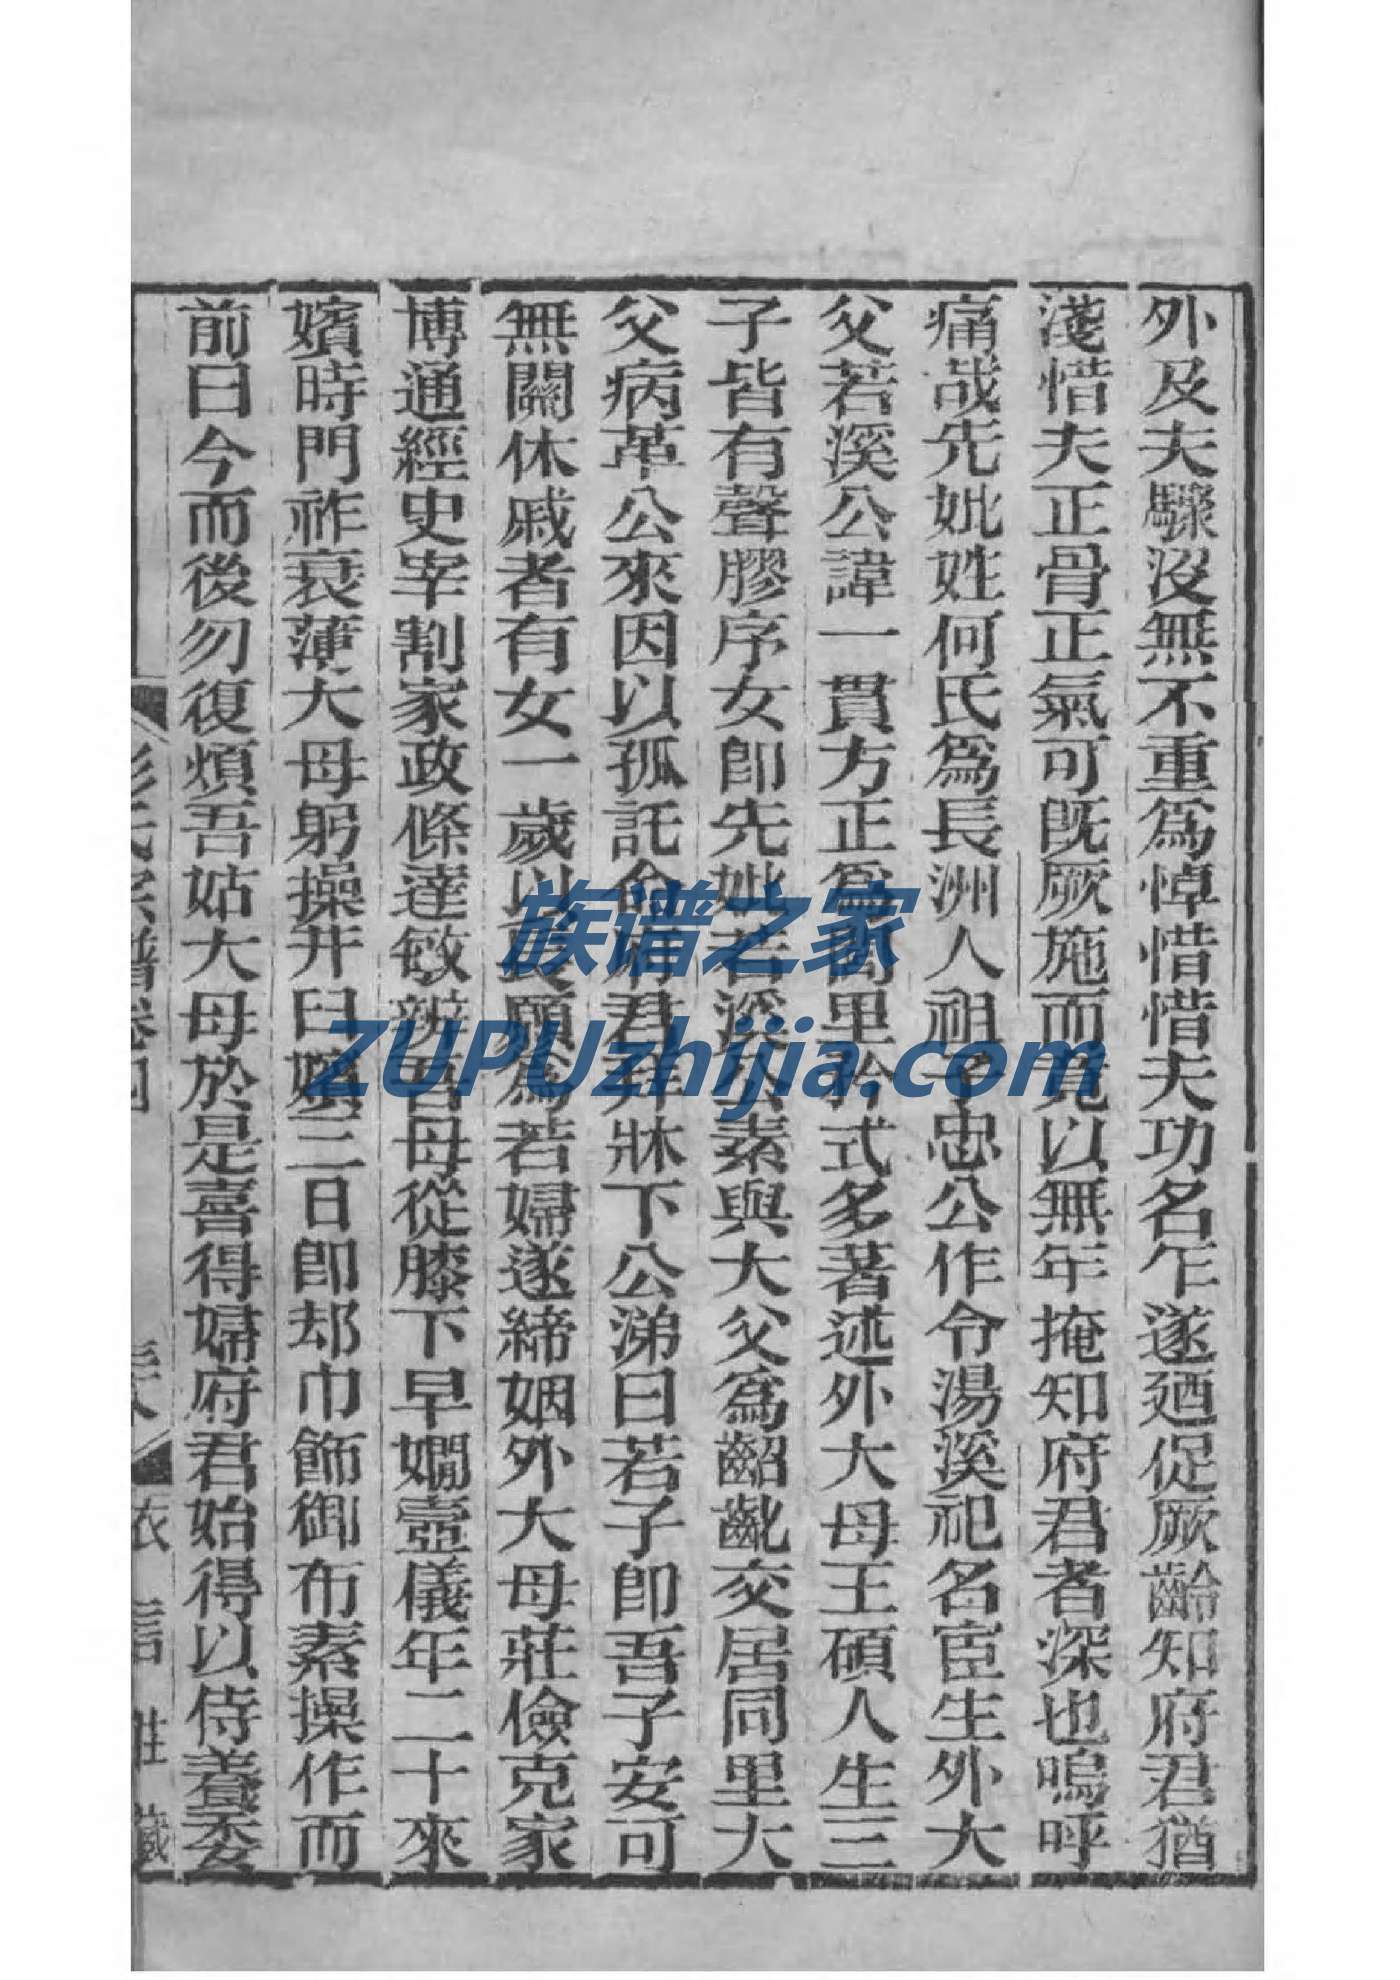 外及夫驟沒無不重爲悼惜惜夫功名乍遂廼促厥齡知府君猶
淺惜夫正骨正氣可旣厥施而竟以無年掩知府君者深也嗚呼
痛哉先妣姓何氏爲長洲人祖子忠公作令湯溪祀名宦生外大
父若溪公諱一貫方正爲閭里矜式多著述外大母王碩人生三
子皆有聲膠序女卽先妣若溪公素與大父爲齠齔交居同里大
父病革公來因以孤託命府君拜牀下公涕曰若子卽吾子安可
無關休戚者有女一歲以長願爲若婦遂締姻外大母莊儉克家
博通經史宰割家政條達敏辨吾母從膝下早嫺壼儀年二十來
嬪時門祚衰薄大母躬操井臼嬪三日卽却巾飾御布素操作而
前曰今而後勿復煩吾姑大母於是喜得婦府君始得以侍養委
彭氏宗譜卷四
衣言莊藏
族谱之家
ZUPUzhijia.com